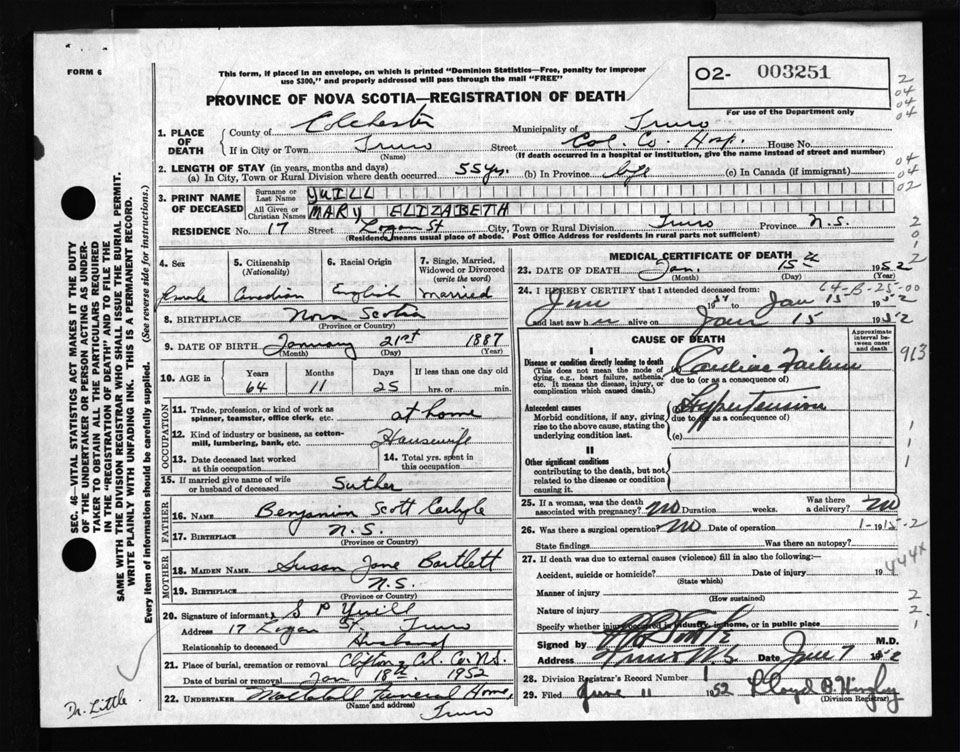 FORM 6
This form, if placed in an envelope, on which is printed "Dominion Statistics—Free, penalty for improper
use $300," and properly addressed will pass through the mail "FREE"
PROVINCE OF NOVA SCOTIA—REGISTRATION OF DEATH
O2- 003251
For use of the Department only
2
04
04
04
1. PLACE OF DEATH { County of Colchester Municipality of Truro
If in City or Town Truro Street Col. Co. Hosp. House No.
(Name) (If death occurred in a hospital or institution, give the name instead of street and number)
2. LENGTH OF STAY (in years, months and days)
(a) In City, Town or Rural Division where death occurred 55 yrs. (b) In Province life (c) In Canada (if immigrant)
04
04
02
3. PRINT NAME OF DECEASED { Surname or Last Name YUILL
All Given or Christian Names MARY ELIZABETH
RESIDENCE No. 17 Street Logan St City, Town or Rural Division Truro Province N.S.
(Residence means usual place of abode. Post Office Address for residents in rural parts not sufficient)
2
0
1
2
4. Sex
female
5. Citizenship
(Nationality)
Canadian
6. Racial Origin
English
7. Single, Married,
Widowed or Divorced
(write the word)
Married
8. BIRTHPLACE Nova Scotia
(Province or Country)
9. DATE OF BIRTH January 21st 1887
(Month) (Day) (Year)
10. AGE in { Years Months Days If less than one day old
64 11 25 hrs. or min.
OCCUPATION
11. Trade, profession, or kind of work as
spinner, teamster, office clerk, etc. at home
12. Kind of industry or business, as cotton-
mill, lumbering, bank, etc. Housewife
13. Date deceased last worked
at this occupation
14. Total yrs. spent in
this occupation
15. If married give name of wife
or husband of deceased Suther
FATHER
16. NAME Benjamin Scott Carlyle
17. BIRTHPLACE N.S.
(Province or Country)
MOTHER
18. MAIDEN NAME Susan Jane Bartlett
19. BIRTHPLACE N.S.
(Province or Country)
20. Signature of informant S P Yuill
Address 17 Logan St. Truro
Relationship to deceased Husband
21. Place of burial, cremation or removal Clifton, Col. Co. N.S.
Date of burial or removal Jan 18th 1952
22. UNDERTAKER Funeral Home,
(Name and address) Truro
MEDICAL CERTIFICATE OF DEATH
23. DATE OF DEATH Jan. 15 1952
(Month) (Day) (Year)
64-B-25-00
24. I HEREBY CERTIFY that I attended deceased from:
19 to Jan 15 1952
and last saw h alive on Jan 15 1952
CAUSE OF DEATH
Approximate
interval be-
tween onset
and death
I
Disease or condition directly leading to death
(This does not mean the mode of
dying, e.g., heart failure, asthenia,
etc. It means the disease, injury, or
complication which caused death.)
Cardiac Failure
due to (or as a consequence of)
Antecedent causes
Morbid conditions, if any, giving
rise to the above cause, stating the
underlying condition last.
Hypertension
due to (or as a consequence of)
(c)
II
Other significant conditions
contributing to the death, but not
related to the disease or condition
causing it.
913
1
1
25. If a woman, was the death Was there
associated with pregnancy? NO Duration weeks. a delivery? NO
26. Was there a surgical operation? NO Date of operation 19
State findings Was there an autopsy?
27. If death was due to external causes (violence) fill in also the following:—
Accident, suicide or homicide? Date of injury 19
(State which)
Manner of injury
(How sustained)
Nature of injury
Specify whether injury occurred in industry, in home, or in public place
444x
2
2
1
Signed by M.D.
Address Truro N.S. Date June 7 1952
28. Division Registrar's Record Number 1
29. Filed June 11 1952 Lloyd B. Hingley
(Division Registrar)
SEC. 46—VITAL STATISTICS ACT MAKES IT THE DUTY
OF THE UNDERTAKER OR PERSON ACTING AS UNDER-
TAKER TO OBTAIN ALL THE PARTICULARS REQUIRED
IN THE "REGISTRATION OF DEATH" AND TO FILE THE
SAME WITH THE DIVISION REGISTRAR WHO SHALL ISSUE THE BURIAL PERMIT.
WRITE PLAINLY WITH UNFADING INK. THIS IS A PERMANENT RECORD.
Every item of information should be carefully supplied. (See reverse side for instructions.)
Dr. Little